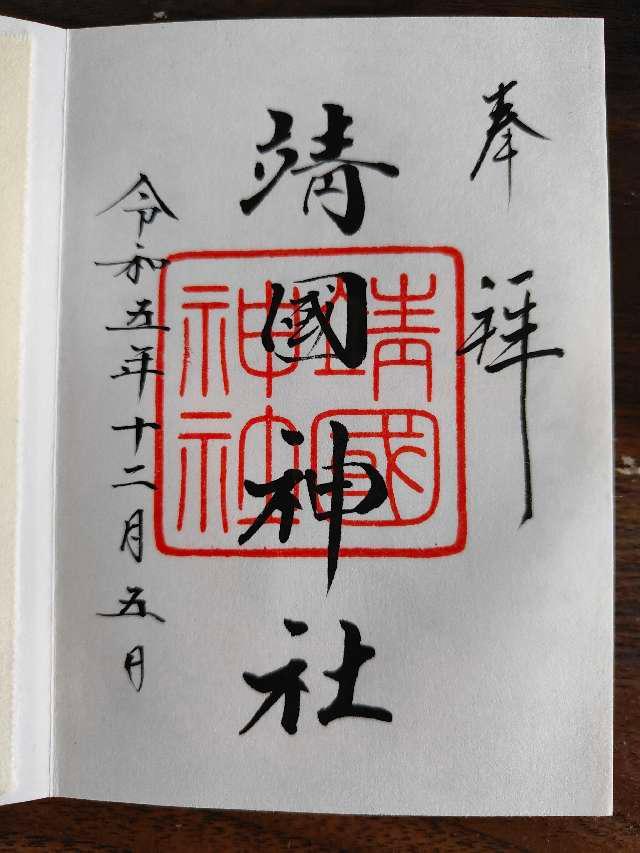 奉拝
靖國神社
靖國神社
令和五年十二月五日